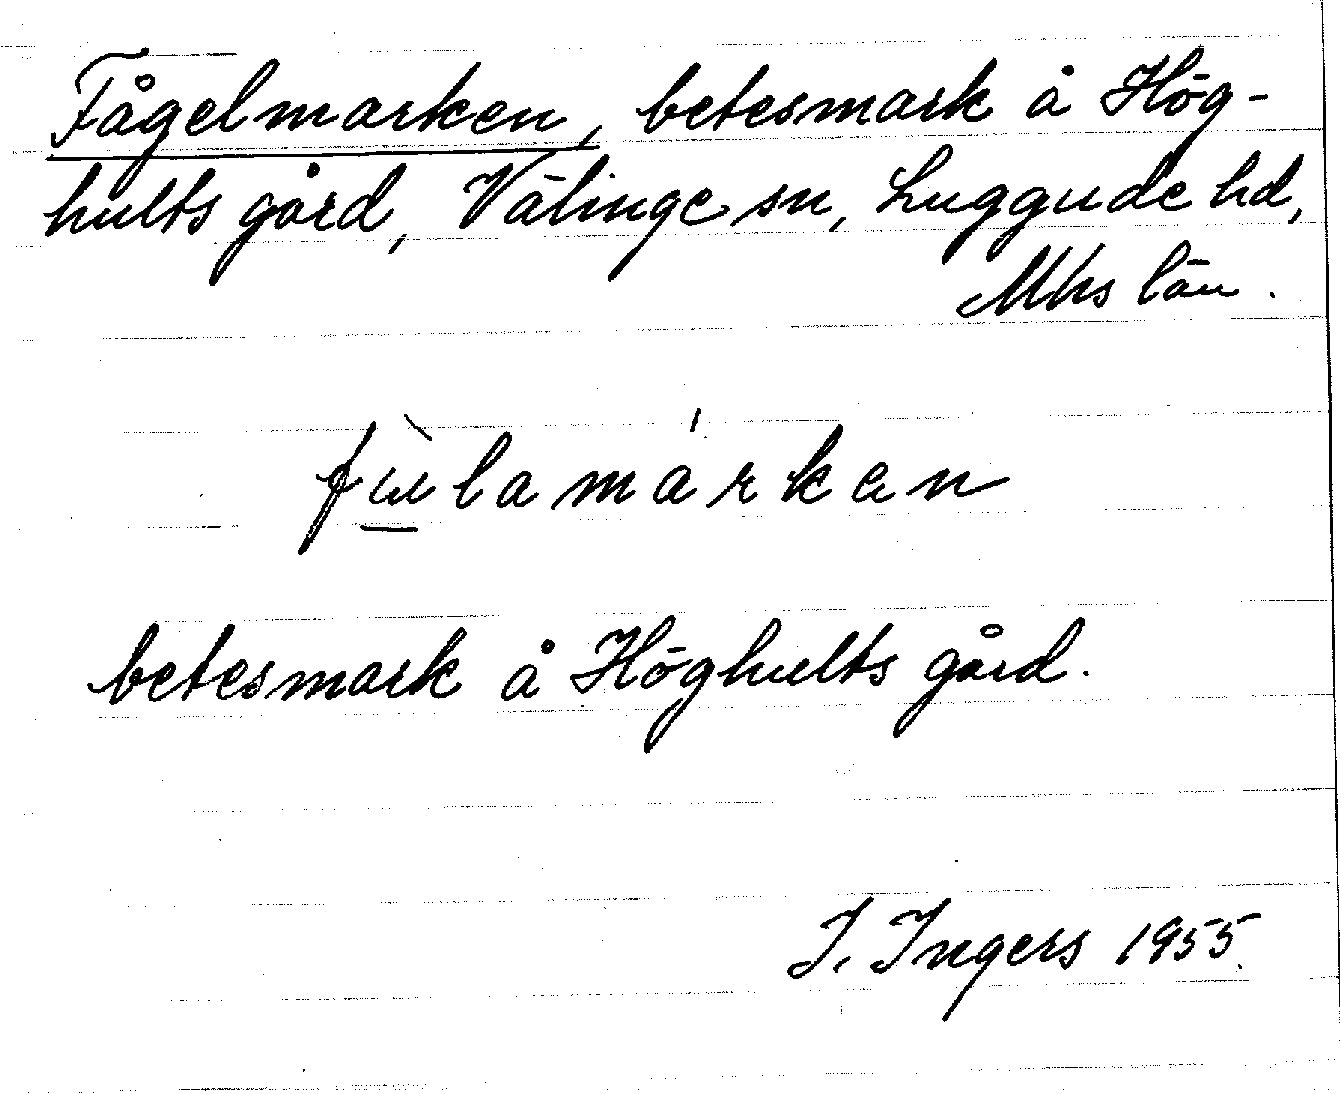 Fågelmarken, betesmark å Hög-
hults gård, Välinge sn, Luggude hd,
Mhs län.
fù̲lamárken
betesmark å Höghults gård.
I. Ingers 1955.